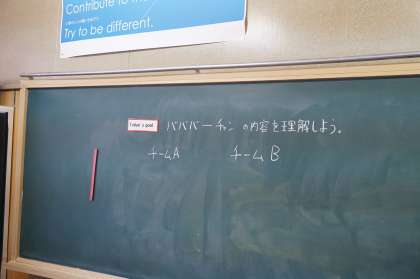 Contribute to the
Try to be different.
バババーチャン の内容を理解しよう。
チームA チームB